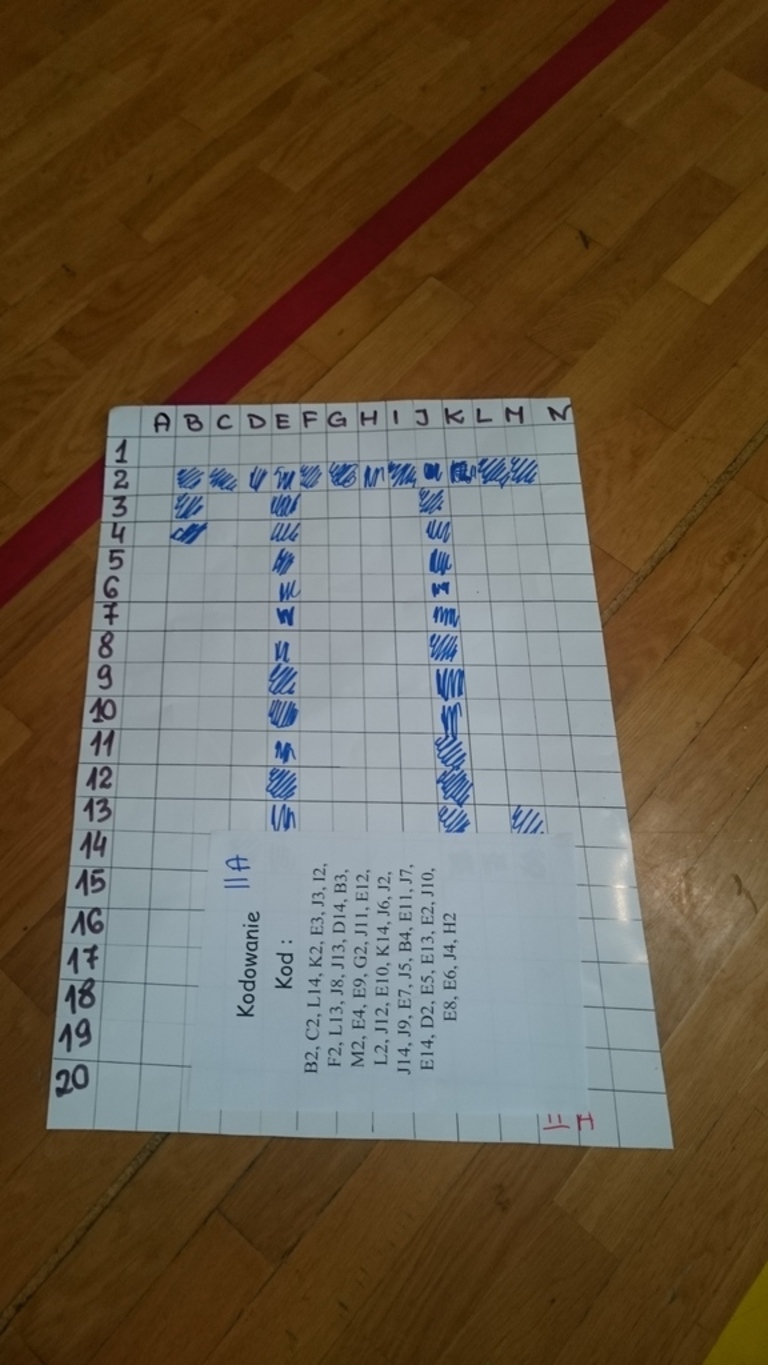 A B C D E F G H I J K L M N
1
2
3
4
5
6
7
8
9
10
11
12
13
14
15
16
17
18
19
20
11A
Kodowanie
Kod :
B2, C2, L14, K2, E3, J3, I2,
F2, L13, J8, J13, D14, B3,
M2, E4, E9, G2, J11, E12,
L2, J12, E10, K14, J6, J2,
J14, J9, E7, J5, B4, E11, J7,
E14, D2, E5, E13, E2, J10,
E8, E6, J4, H2